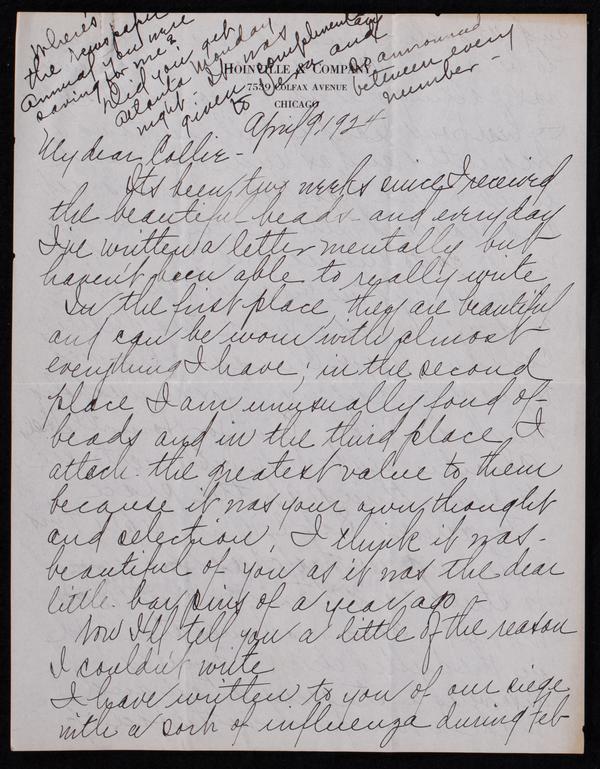 Where's
the newspaper
annual you were
saving for me?
Did you get
Atlanta Monday
night. It was
given complimentary
to and
announced
between every
number –
HOINVILLE & COMPANY
7539 COLFAX AVENUE
CHICAGO
April 9, 1924
My dear Collie –
It's been two weeks since I received
the beautiful beads and everyday
I've written a letter mentally but
haven't been able to really write
In the first place, they are beautiful
and can be worn with almost
everything I have; in the second
place I am unusually fond of
beads and in the third place, I
attach the greatest value to them
because it was your own thought
and selection, I think it was
beautiful of you as it was the dear
little bar pins of a year ago
Now I'll tell you a little of the reason
I couldn't write
I have written to you of our siege
with a sort of influenza during Feb